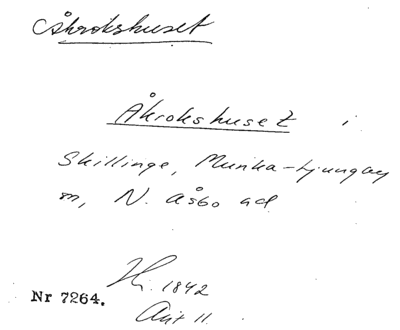 Åkrokshuset
Åkrokshuset i
Skillinge, Munka-Ljungby
sn, N. Åsbo hd
Hf. 1842
Nr 7264.
Akt 11.